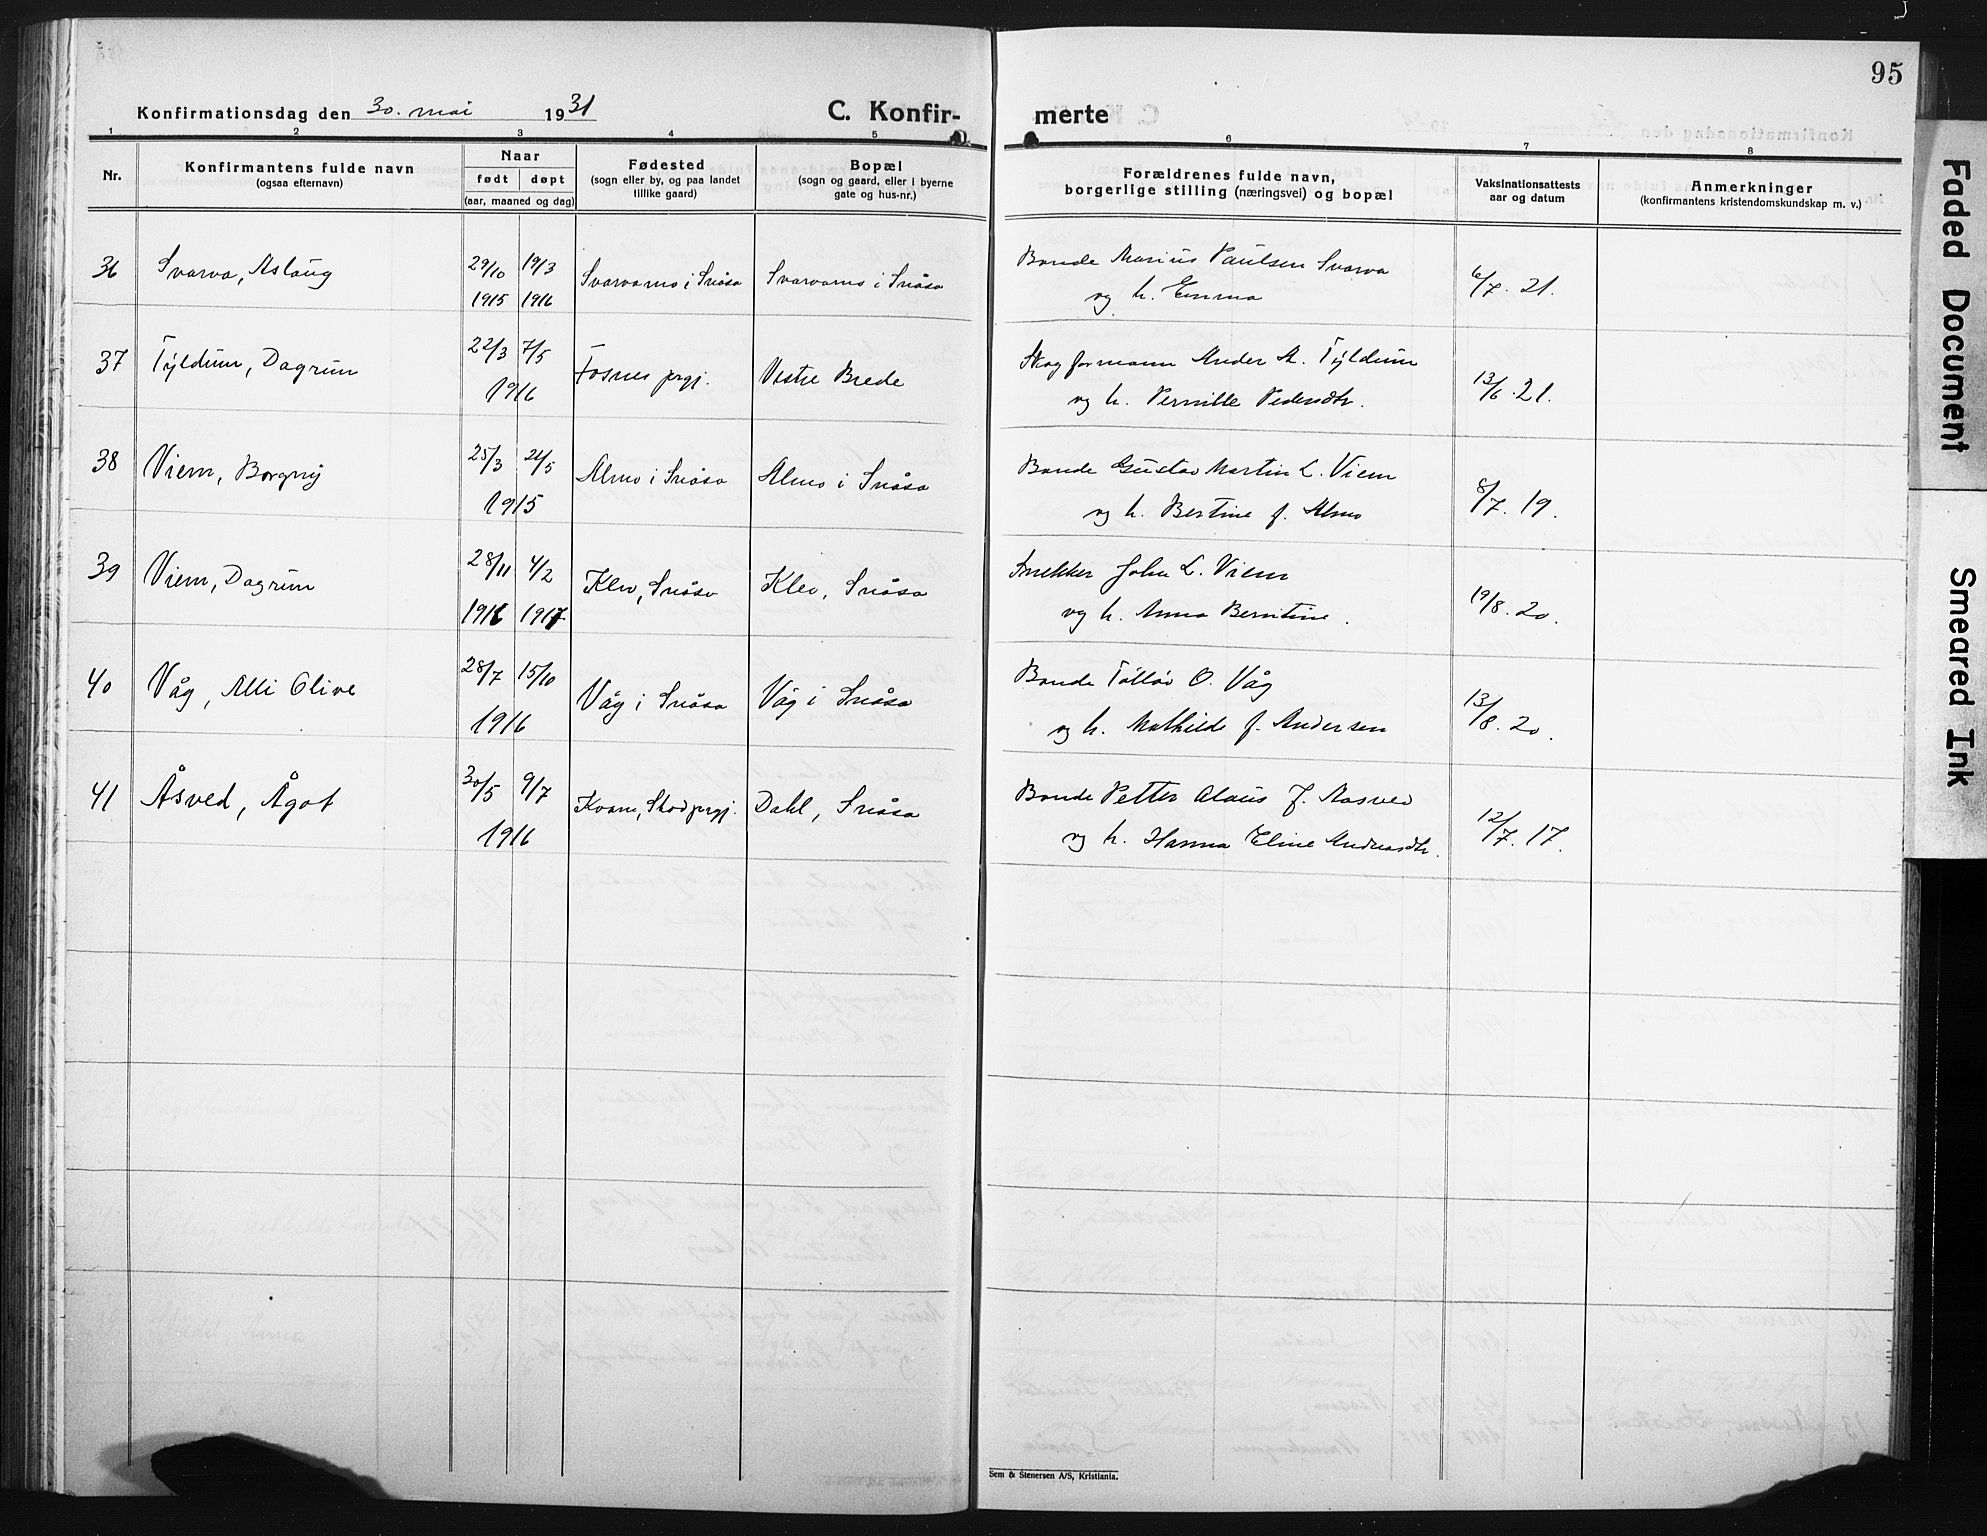 95
Konfirmationsdag den 30. mai 1931
C. Konfir-
merte
1 2 3 4 5 6 7 8
Nr.
Konfirmantens fulde navn
(ogsaa efternavn)
Naar
født døpt
(aar, maaned og dag)
Fødested
(sogn eller by, og paa landet
tillike gaard)
Bopæl
(sogn og gaard, eller i byerne
gate og hus-nr.)
Forældrenes fulde navn,
borgerlige stilling (næringsvei) og bopæl
Vaksinationsattests
aar og datum
Anmerkninger
(konfirmantens kristendomskundskap m. v.)
36 Svarva, Aslaug 29/10 19/3 Svarvamo i Snåsa Svarvamo i Snåsa Bonde Marius Paulsen Svarva 6/7. 21.
1915 1916 og h. Emma
37 Tyldum, Dagrun 22/3 7/5 Fosnes prgj. Vestre Brede Skogformann Ander A. Tyldum 13/6. 21.
1916 og h. Pernille Pedersdtr.
38 Viem, Borgny 25/3 24/5 Almo i Snåsa Almo i Snåsa Bonde Gustav Martin L. Viem 8/7. 19.
1915 og h. Bertine f. Almo
39 Viem, Dagrun 28/11 4/2 Klev, Snåsa Klev, Snåsa Snekker John L. Viem 19/8. 20.
1916 1917 og h. Anna Berntine.
40 Våg, Alli Olive 28/7 15/10 Våg i Snåsa Våg i Snåsa Bonde Tollöv O. Våg 13/8. 20.
1916 og h. Mathilde f. Andersen
41 Åsved, Ågot 30/5 9/7 Kvam, Stodprgj. Dahl, Snåsa Bonde Petter Alaus J. Aasved 12/7. 17.
1916 og h. Hanna Eline Andreasdtr.
Sem & Stenersen A/S, Kristiania.
Faded Document
Smeared Ink